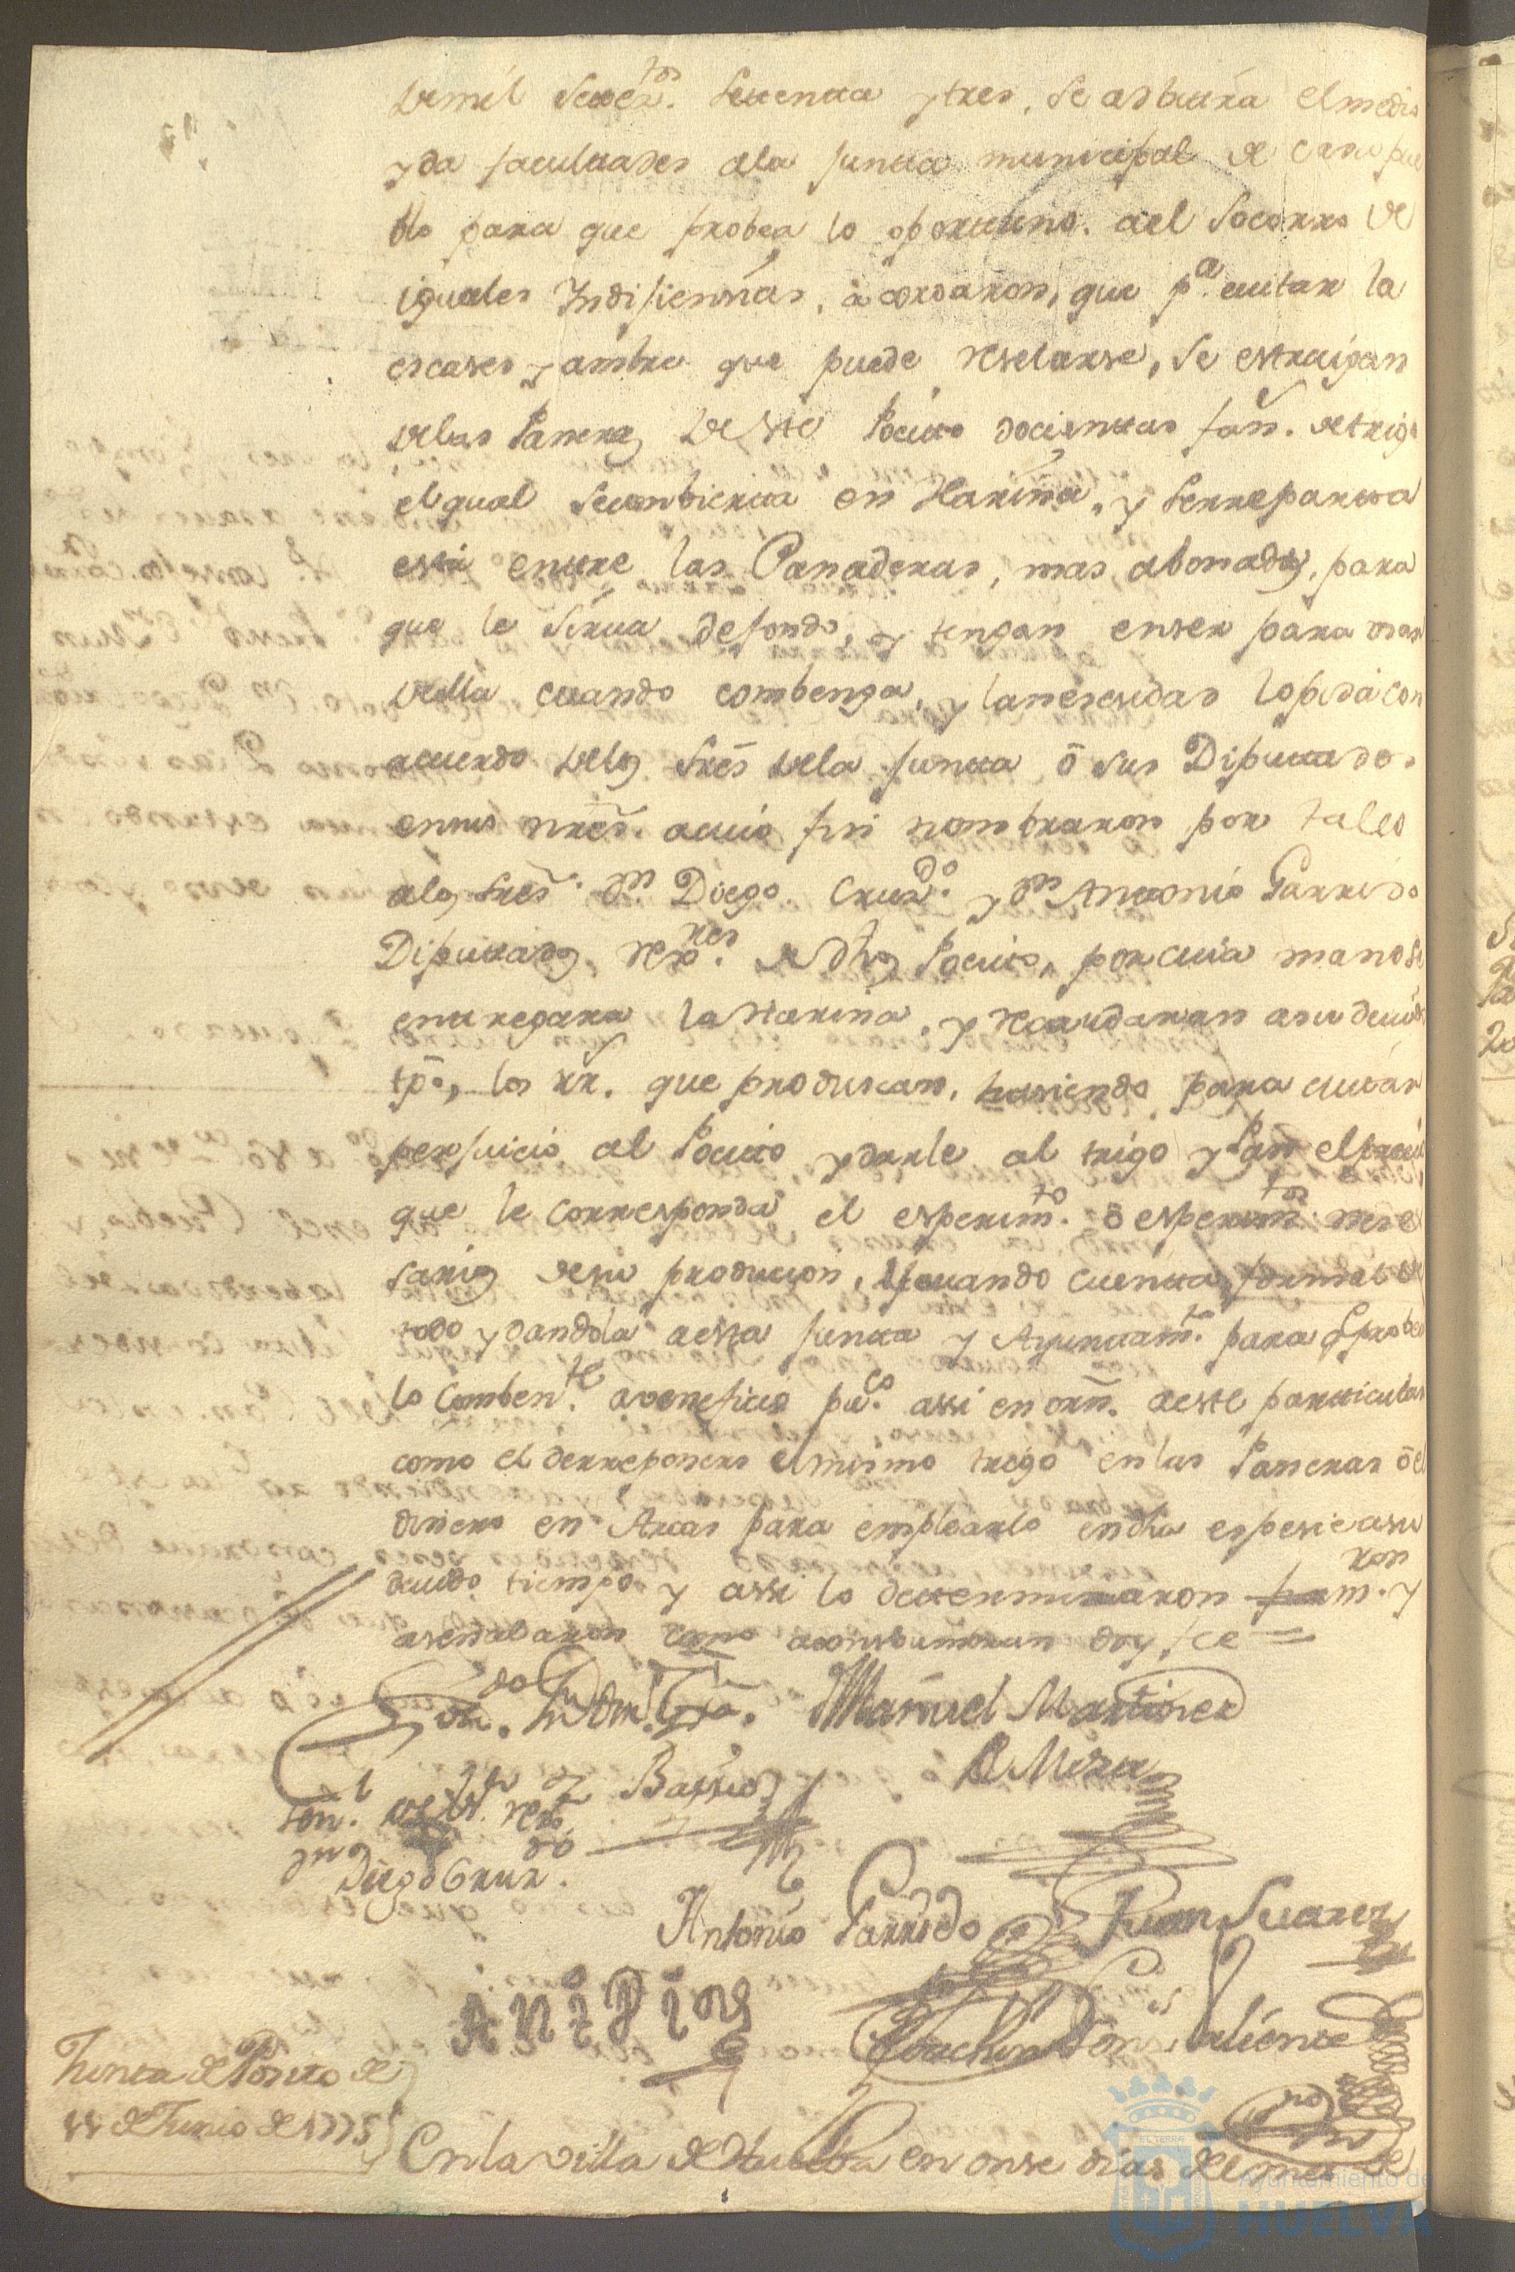 de mil Setezᵗᵒˢ. Settentta y tres, Se arbittra el medio
y da facultades a la Juntta municipal de cada pue
blo para que probea lo oporttuno. al Socorro de
iguales Yndisiennias, acordaron, que pᵃ. evitar la
escases y ambre que puede reselarse, Se estraigan
de las Paneras de este Pocito docienttas fan. de trigo
el qual Secombierta en Harina, y Serreparta
esta enttre las Panaderas, mas abonadas, para
que le Sirva de fondo, y tengan enser para usar
della cuando combenga, y la nesesidad lo pida con
acuerdo de los Sres de la Juntta ó sus Diputtados
enttus nres. a cuio fin nombraron por tales
a los Sres. Dⁿ. Diego Cruzᵈᵒ. y Dⁿ Anttonio Garrido
Diputtados rexᵣₑₛ. de dho Pocito, por cuia mano se
enttregara la Harina, y recaudaran a su devido
tpo, los rr. que produscan, hasiendo para evitar
perjuicio al Pocito y darle al trigo y Pan el precio
que le corresponda el esperimᵗᵒ. ó esperimᵗᵒˢ nese
sarios de su producion, llevando cuentta formal de
todo y dandola a esta Juntta y Ayunttamᵗᵒ. para q probea
lo Combenᵗᵉ. a veneficio puᶜᵒ. assi en orn. a este particular
como el de rreponers el mismo trigo en las Paneras ó el
dinero en Arcas para emplearlo en dha espesie a su
devido tiempo y assi lo determinaron
asenalaron como acostumbran doy fee =
Manuel Martinez
de Mora
Barrios
Diego Cruzᵈᵒ.
Antonio Garrido
Juan Suarez
Joachin Valiente
Junta de Posito de
11 de Junio de 1775
En la villa de Huelba en onse dias del mes de
Ayuntamiento de
HUELVA